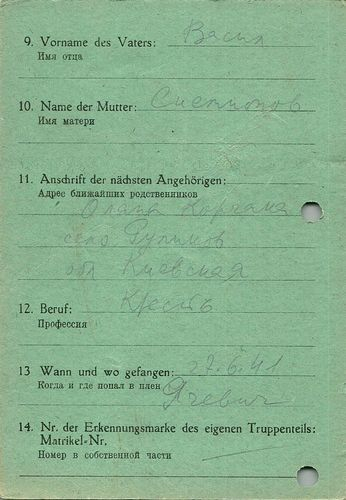 9. Vorname des Vaters: Васил
Имя отца
10. Name der Mutter:
Имя матери
11. Anschrift der nächsten Angehörigen:
Адрес ближайших родственников
село
обл Киевская
12. Beruf: Крестъ
Профессия
13 Wann und wo gefangen: 27.6.41
Когда и где попал в плен
14. Nr. der Erkennungsmarke des eigenen Truppenteils:
Matrikel-Nr.
Номер в собственной части